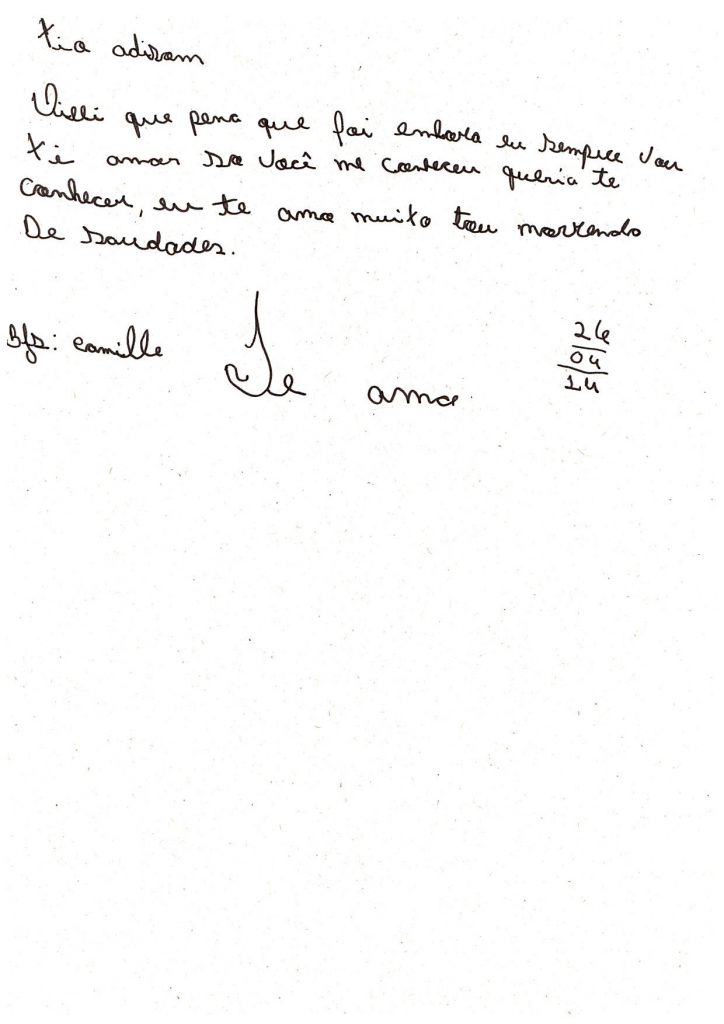 tio adiram
Villi que pena que foi embora eu sempre vou
ti amar so você me conheceu queria te
conhecer, eu te amo muito tou morrendo
De saudades.
Bjs: camille
Te amo
26
04
14